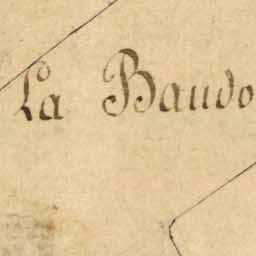 La Baudo